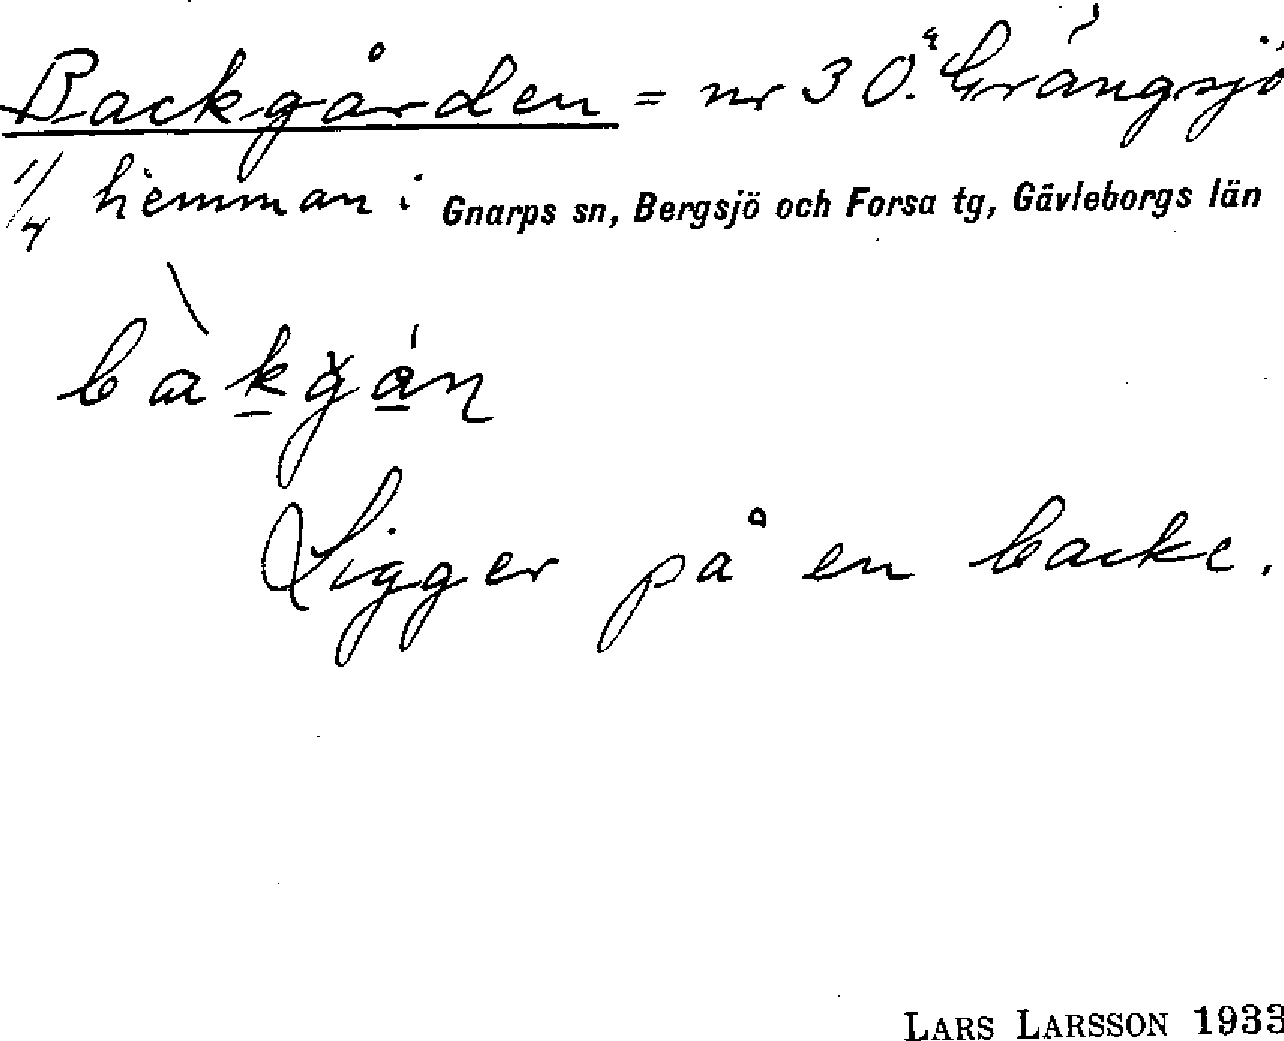 Backgården = nr 30.ᵃ Grängsjö
1/4 hemman i Gnarps sn, Bergsjö och Forsa tg, Gävleborgs län
bàkgån
Ligger på en backe.
LARS LARSSON 1933